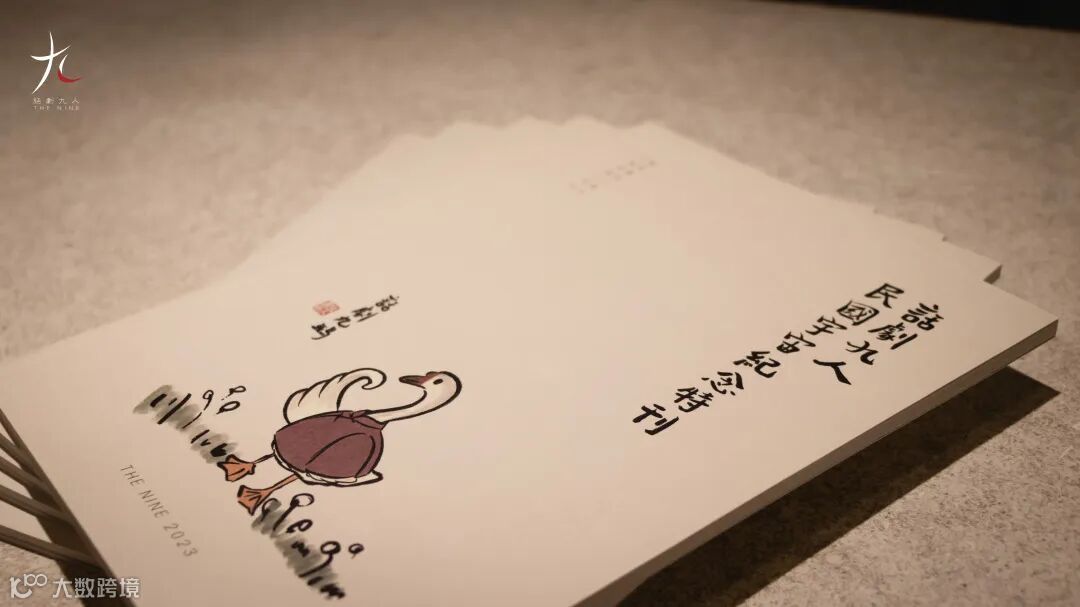 話劇九人
THE NINE
話劇九人
民國宇宙紀念特刊
話劇九鵝
THE NINE 2023
大数跨境